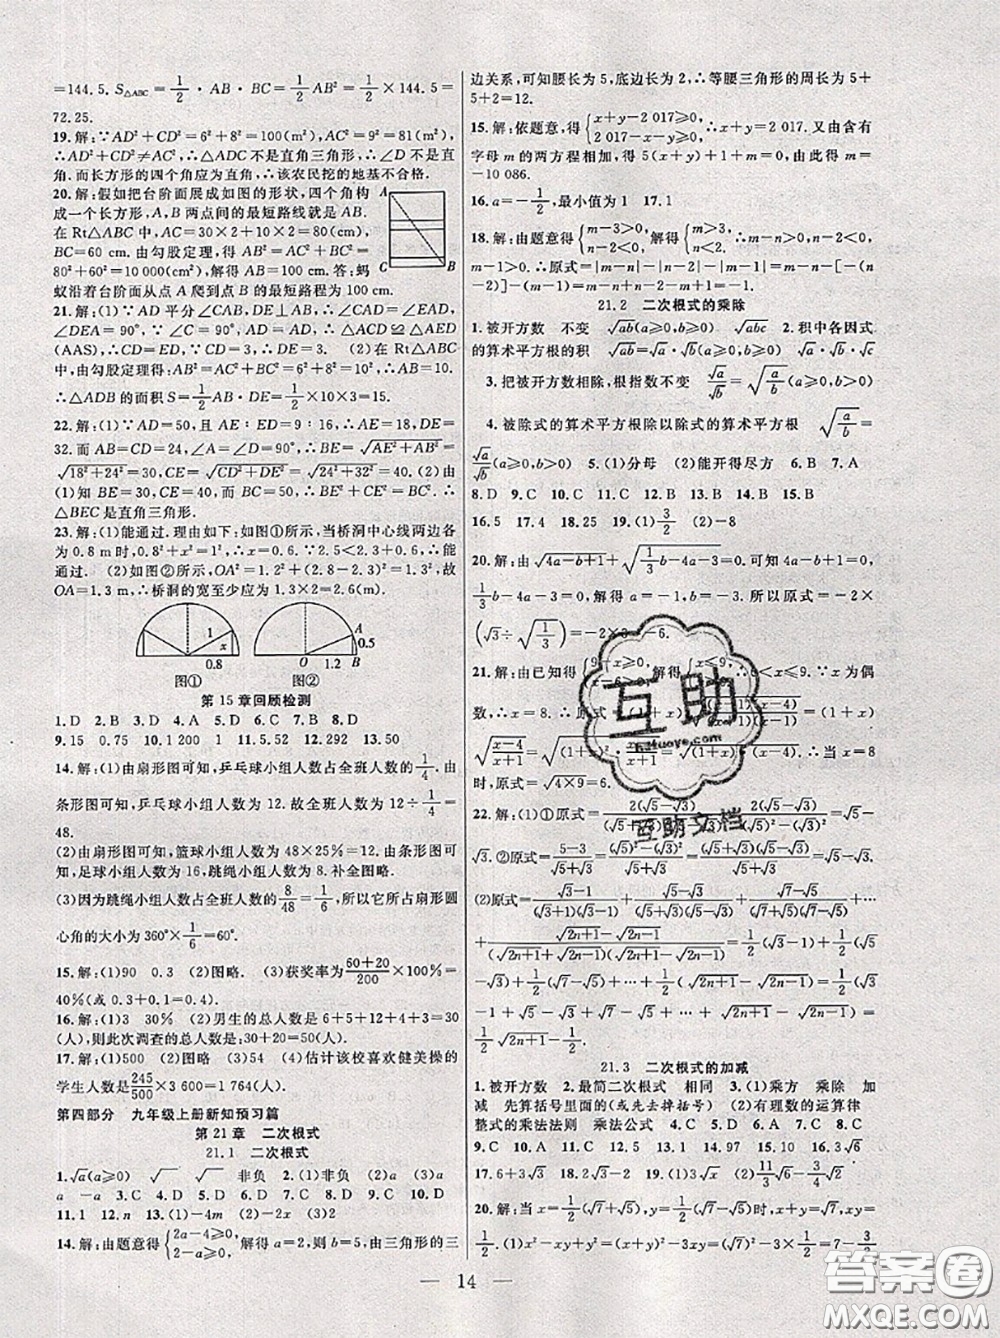 =144.5. S△ABC=1/2·AB·BC=1/2AB²=1/2×144.5=
72.25.
19.解:∵AD²+CD²=6²+8²=100(m²),AC²=9²=81(m²),
∴AD²+CD²≠AC²,∴△ADC 不是直角三角形,∴∠D 不是直
角.而长方形的四个角应为直角,∴该农民挖的地基不合格.
20.解:假如把台阶面展成如图的形状,四个角构
成一个长方形,A,B 两点间的最短路线就是 AB.
在 Rt△ABC 中,AC=30×2+10×2=80(cm),
BC=60 cm. 由勾股定理,得 AB²=AC²+BC²=
80²+60²=10 000(cm²),解得 AB=100 cm.答:蚂
蚁沿着台阶面从点 A 爬到点 B 的最短路程为 100 cm.
A
C
B
21.解:(1)∵AD 平分∠CAB,DE⊥AB,∴∠CAD=∠EAD,
∠DEA=90°,∵∠C=90°,AD=AD,∴△ACD≌△AED
(AAS),∴CD=DE=3,∴DE=3. (2)在 Rt△ABC
中,由勾股定理得:AB²=AC²+BC²=6²+8²=10²,∴AB=10.
∴△ADB 的面积 S=1/2AB·DE=1/2×10×3=15.
22.解:(1)∵AD=50,且 AE∶ED=9∶16,∴AE=18,DE=
32.而 AB=CD=24,∠A=∠D=90°,∴BE=√(AE²+AB²)=
√(18²+24²)=30,CE=√(CD²+DE²)=√(24²+32²)=40. (2)由
(1)知 BE=30,CE=40,又 BC=50,∴BE²+CE²=BC².∴
△BEC 是直角三角形.
23.解:(1)能通过.理由如下:如图①所示,当桥洞中心线两边各
为 0.8 m 时,由勾股定理得 x²+0.8²=1²,∴x=0.6,∴能
通过. (2)如图②所示,OA²=1.2²+(2.8-2.3)²=1.3²,故
OA=1.3 m,∴桥洞的宽至少应为 1.3×2=2.6(m).
1 x 0.8
A 0.5 O 1.2 B
图① 图②
第 15 章回顾检测
1.D 2.D 3.C 4.A 5.D 6.C 7.B 8.D
9.15 0.75 10.1 200 1 11.5,52 12.292 13.50
14.解:(1)由扇形图可知,乒乓球小组人数占全班人数的1/4.由
条形图可知,乒乓球小组人数为 12.故全班人数为 12÷1/4=
48.
(2)由扇形图可知,篮球小组人数为 48×25%=12.由条形图可知,
足球小组人数为 16,跳绳小组人数为 8.补全图略.
(3)因为跳绳小组人数占全班人数的8/48=1/6,所以它所占扇形圆
心角的大小为 360°×1/6=60°.
15.解:(1)90 0.3 (2)图略. (3)获奖率为(60+20)/200×100%=
40%(或 0.3+0.1=0.4).
16.解:(1)3 30% (2)男生的总人数是 6+5+12+4+3=30
(人),则此次调查的总人数是:30+20=50(人).
17.解:(1)500 (2)图略 (3)54 (4)估计该校喜欢健美操的
学生人数是245/500×3 600=1 764(人).
第四部分 九年级上册新知预习篇
第 21 章 二次根式
21.1 二次根式
1.√a(a≥0) √ √ 非负 2.(1)非负 非负 (2)a (3)a
a -a 3.C 4.D 5.D 6.C 7.B 8.C 9.D 10.D
11.1 12.n 13.(1)-4m (2)-2x (3)2
14.解:由题意得{2a-4≥0, 2-a≥0, 解得 a=2,则 b=5,由三角形的三
边关系,可知腰长为 5,底边长为 2,∴等腰三角形的周长为 5+
5+2=12.
15.解:依题意,得{x+y-2 017≥0, 2 017-x-y≥0, ∴x+y=2 017.又由含有
字母 m 的两方程相加,得 5(x+y)+1+m=0,由此得 m=
-10 086.
16.a=-1/2,最小值为 1 17.1
18.解:由题意得{m-3>0, n-2<0, 解得{m>3, n<2. ∴m-n>0,n-2<0,
m-1>0,∴原式=|m-n|-|n-2|-|m-1|=m-n-[-(n
-2)]-(m-1)=m-n+n-2-m+1=-1.
21.2 二次根式的乘除
1.被开方数 不变 √ab(a≥0,b≥0) √abc 2.积中各因式
的算术平方根的积 √ab=√a·√b(a≥0,b≥0) √a·√b·√c
3.把被开方数相除,根指数不变 √a/√b=√(a/b)(a≥0,b>0)
4.被除式的算术平方根除以除式的算术平方根 √(a/b)=
√a/√b(a≥0,b>0) 5.(1)分母 (2)能开得尽方 6.B 7.A
8.D 9.C 10.D 11.A 12.C 13.C 14.B 15.B
16.5 17.4 18.25 19.(1)3/2 (2)-8
20.解:由√(4a-b+1)+√(1/3b-4a-3)=0.可知 4a-b+1=0,
1/3b-4a-3=0,解得 a=-1,b=-3.所以原式=-2×
(√3÷√(1/3))=-2×3=-6.
21.解:由已知得{9-x≥0, x-6>0, 解得{x≤9, <x≤9.∵x 为偶
数,∴x=8.原式=(1+x)
√((x-4)/(x+1))=√((1+x)(x-4)).∴当 x=8
时,原式=√(4×9)=6.
22.解:(1)①原式=2(√5-√3)/=2(√5-√3)/((√5)²-(√3)²)=√5-
√3.②原式=(5-3)/(√5+√3)=((√5)²-(√3)²)/(√5+√3)=√5-√3.
(2)原式=(√3-1)/((√3+1)(√3-1))+(√5-√3)/((√5+√3)(√5-√3))+(√7-√5)/((√7+√5)(√7-√5))+…
+(√(2n+1)-√(2n-1))/((√(2n+1)+√(2n-1))(√(2n+1)-√(2n-1)))=1/2(√3-1)+1/2(√5
-√3)+1/2(√7-√5)+…+1/2(√(2n+1)-√(2n-1))=1/2(√3
-1+√5-√3+√7-√5+…+√(2n+1)-√(2n-1))=1/2√(2n+1)-
1/2.
21.3 二次根式的加减
1.被开方数 2.最简二次根式 相同 3.(1)乘方 乘除 加
减 先算括号里面的(或先去掉括号) (2)有理数的运算律
整式的乘法法则 乘法公式 4.C 5.C 6.D 7.C 8.C
9.C 10.A 11.D 12.C 13.C 14.2√3 15.-√x 16.3√6
17.6+3√3 18.2√3-2 19.(1)2√3 (2)11/3√3-4/3√6
20.解:当 x=1/2(√7+√5),y=1/2(√7-√5)时,x+y=√7,xy=
1/2.(1)x²-xy+y²=(x+y)²-3xy=(√7)²-3×1/2=7-3/2=
14
互助
互助文档
答案圈
MXQE.COM